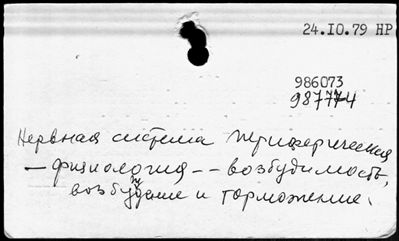 24.IO.79 НР
986073
987774
Нервная система периферическая
— физиология -- возбудимость,
возбуждение и торможение.